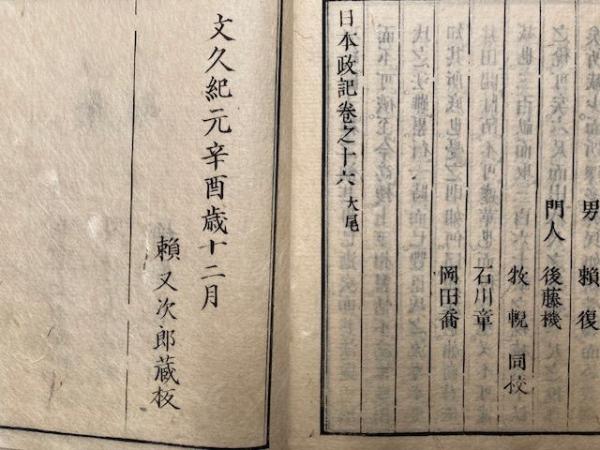 男 賴復
門人 後藤機
牧輗 同校
石川章
岡田喬
日本政記卷之十六 大尾
文久紀元辛酉歳十二月
賴又次郎蔵板